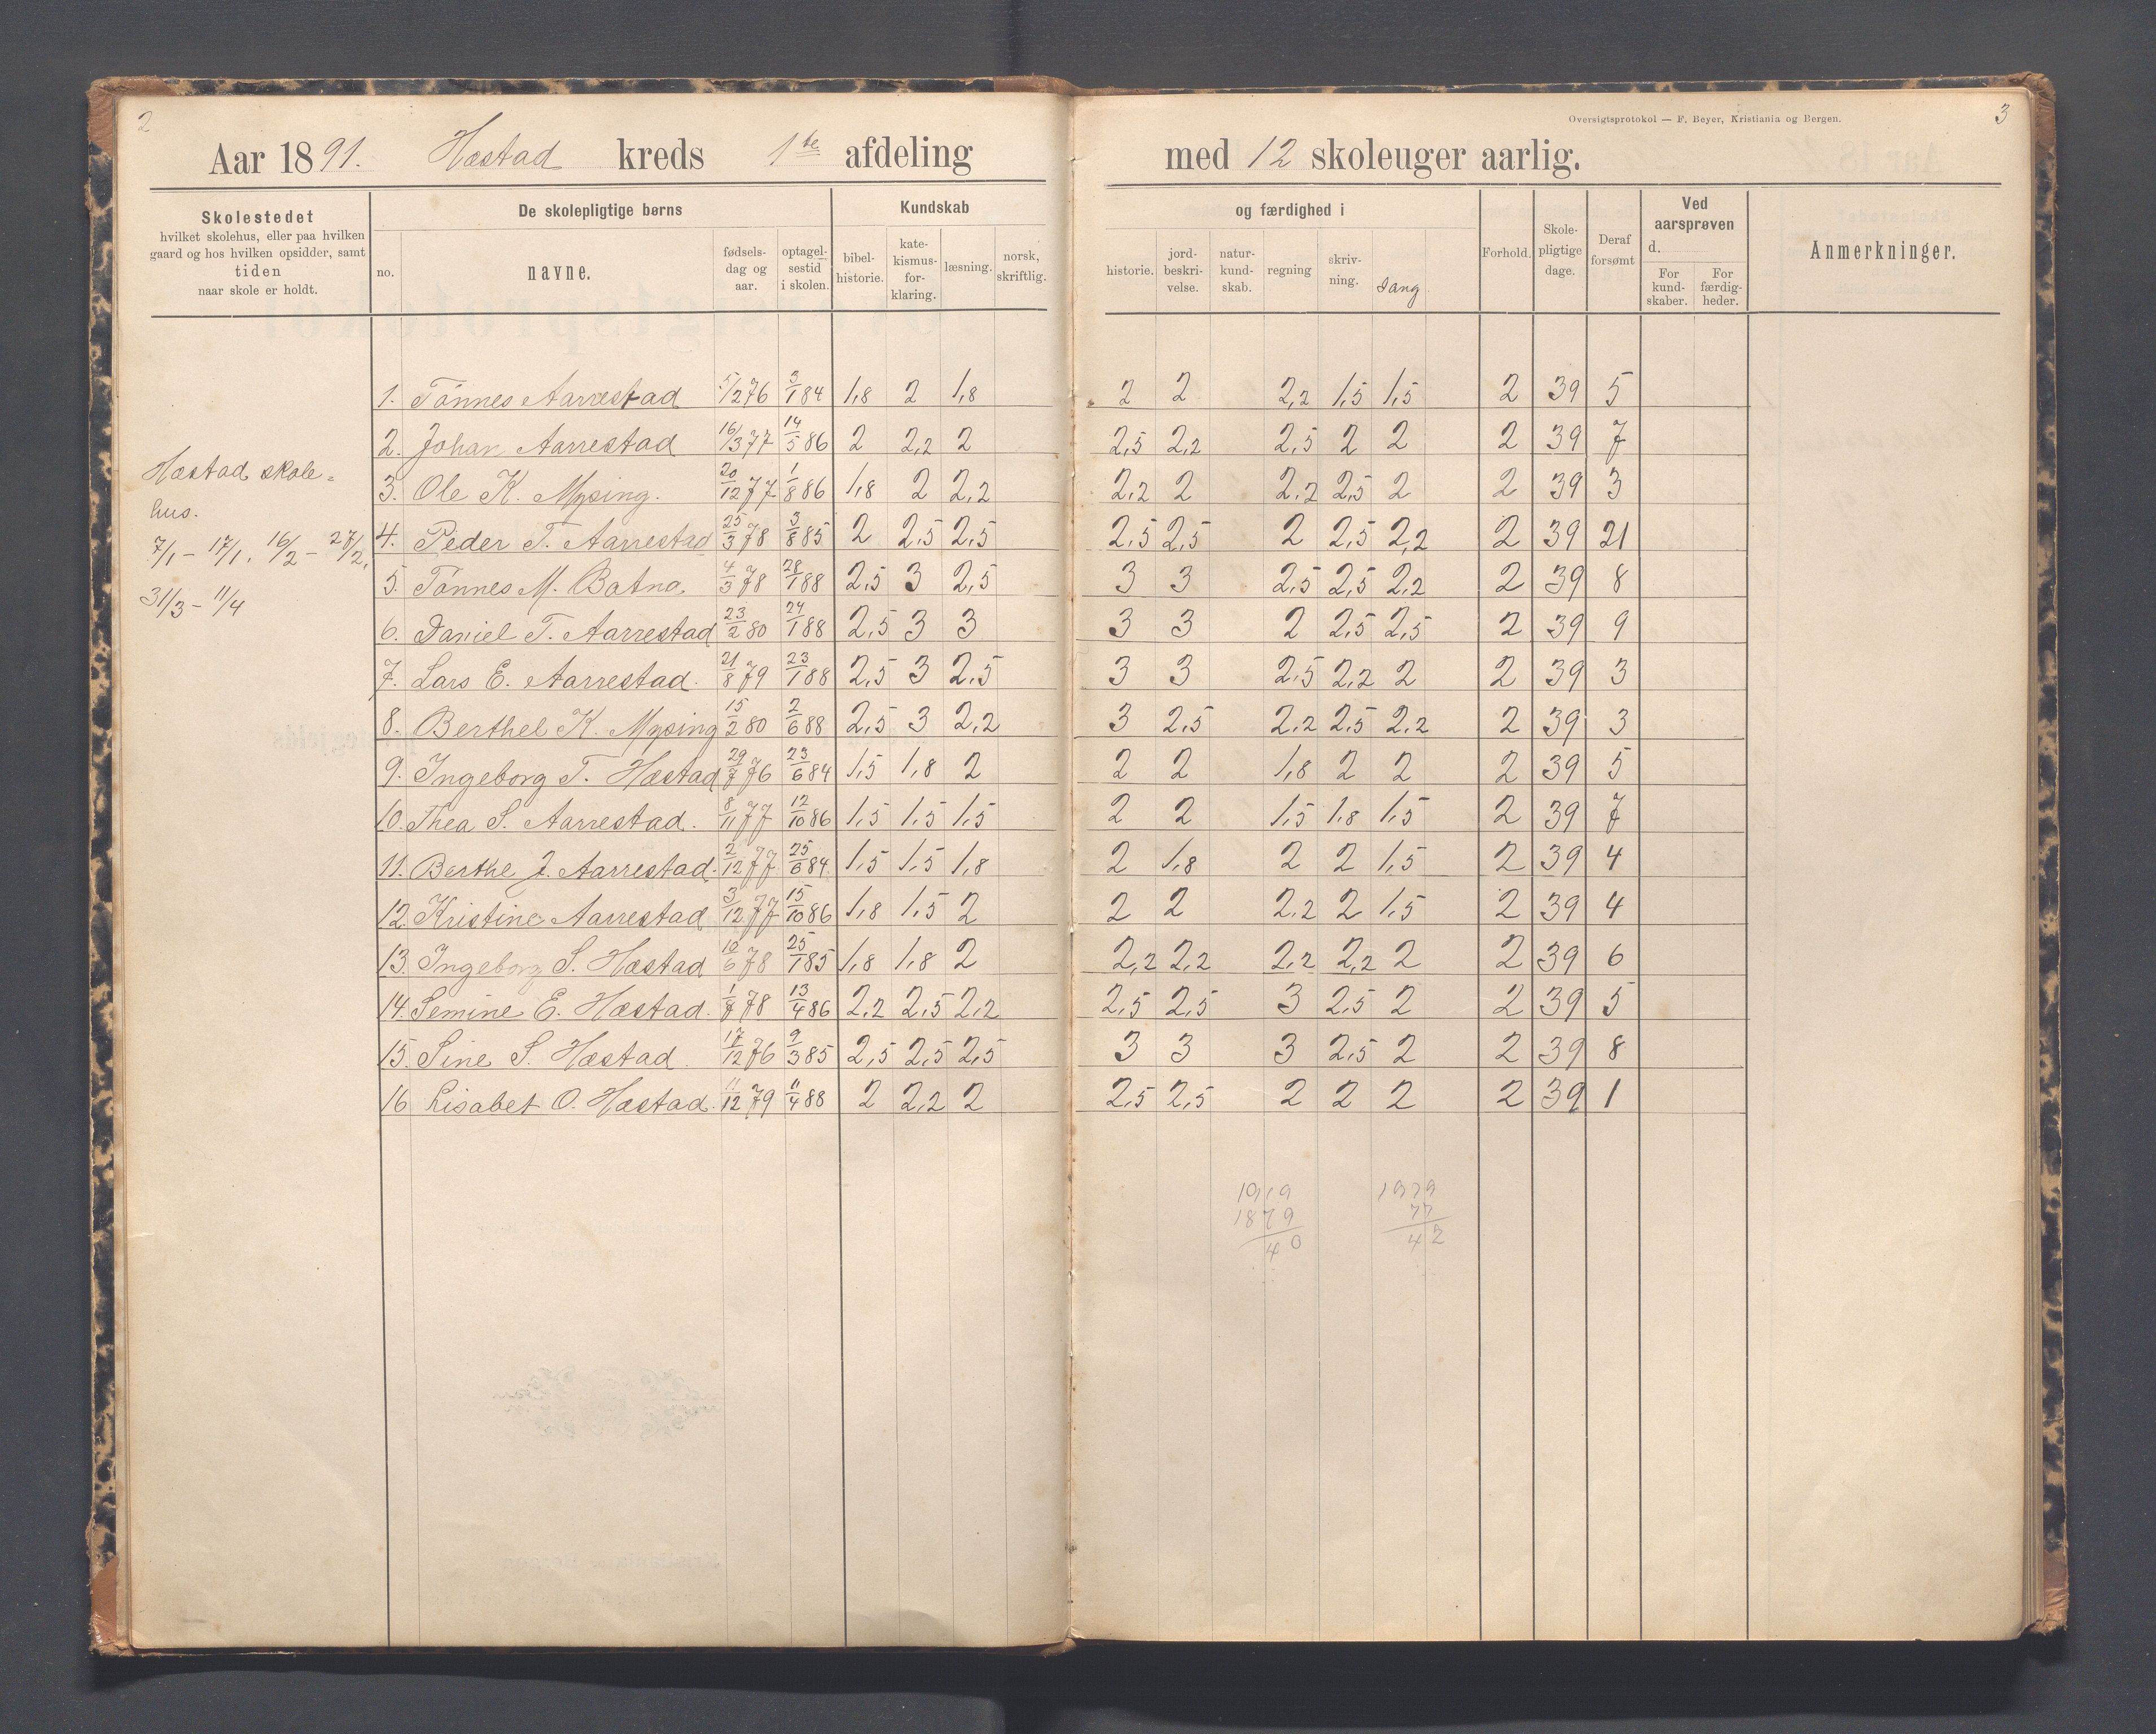 2
Oversigtsprotokol — F. Beyer, Kristiania og Bergen.
3
Aar 1891. Hæstad kreds 1ste afdeling med 12 skoleuger aarlig.
Skolestedet
hvilket skolehus, eller paa hvilken
gaard og hos hvilken opsidder, samt
tiden
naar skole er holdt.
De skolepligtige børns
no.
navne.
fødsels-
dag og
aar.
optagel-
sestid
i skolen.
Kundskab
bibel-
historie.
kate-
kismus-
for-
klaring.
læsning.
norsk,
skriftlig.
og færdighed i
historie.
jord-
beskri-
velse.
natur-
kund-
skab.
regning
skriv-
ning.
Sang
Forhold.
Skole-
pligtige
dage.
Deraf
forsømt
Ved
aarsprøven
d.
For
kund-
skaber.
For
færdig-
heder.
Anmerkninger.
Hæstad skole-
hus.
7/1 - 17/1. 16/2 - 27/2.
31/3 - 11/4
1. Tønnes Aarrestad 5/2 76 3/1 84 1,8 2 1,8 2 2 2,2 1,5 1,5 2 39 5
2. Johan Aarrestad 16/3 77 14/5 86 2 2,2 2 2,5 2,2 2,5 2 2 2 39 7
3. Ole K. Mysing. 20/12 77 1/8 86 1,8 2 2,2 2,2 2 2,2 2,5 2 2 39 3
4. Peder T. Aarrestad 25/3 78 3/8 85 2 2,5 2,5 2,5 2,5 2 2,5 2,2 2 39 21
5. Tønnes M. Batno. 4/3 78 28/1 88 2,5 3 2,5 3 3 2,5 2,5 2,2 2 39 8
6. Daniel T. Aarrestad 23/2 80 24/1 88 2,5 3 3 3 3 2 2,5 2,5 2 39 9
7. Lars E. Aarrestad. 21/8 79 23/1 88 2,5 3 2,5 3 3 2,5 2,2 2 2 39 3
8. Berthel K. Mysing 15/2 80 2/6 88 2,5 3 2,2 3 2,5 2,2 2,5 2,2 2 39 3
9. Ingeborg T. Hæstad 29/7 76 23/6 84 1,5 1,8 2 2 2 1,8 2 2 2 39 5
10. Thea S. Aarrestad. 8/11 77 12/10 86 1,5 1,5 1,5 2 2 1,5 1,8 1,5 2 39 7
11. Berthe J. Aarrestad. 2/12 77 25/6 84 1,5 1,5 1,8 2 1,8 2 2 1,5 2 39 4
12. Kristine Aarrestad 3/12 77 15/10 86 1,8 1,5 2 2 2 2,2 2 1,5 2 39 4
13. Ingeborg S. Hæstad 10/6 78 25/1 85 1,8 1,8 2 2,2 2,2 2,2 2,2 2 2 39 6
14. Semine E. Hæstad. 1/8 78 13/4 86 2,2 2,5 2,2 2,5 2,5 3 2,5 2 2 39 5
15. Sine S. Hæstad. 17/12 76 9/3 85 2,5 2,5 2,5 3 3 3 2,5 2 2 39 8
16 Lisabet O. Hæstad. 11/12 79 11/4 88 2 2,2 2 2,5 2,5 2 2 2 2 39 1
1919 1979
1879 77
40 42